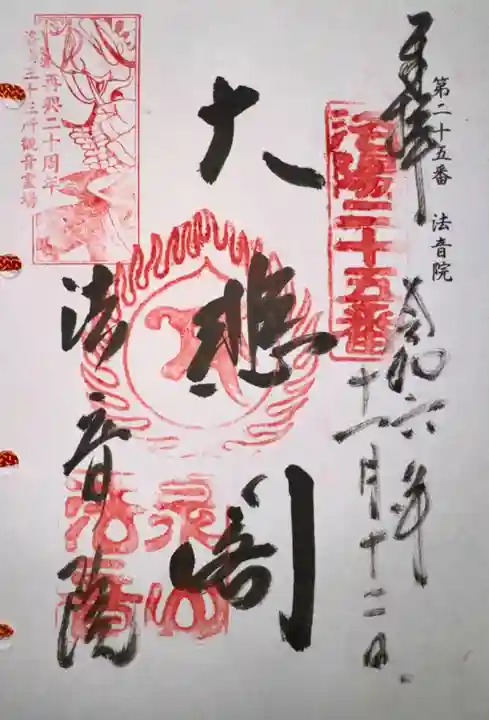 奉拝
第二十五番 法音院
令和六年
十一月十二日
洛陽二十五番
大悲殿
法音院
泉山
法音
再興二十周年
洛陽三十三所観音霊場